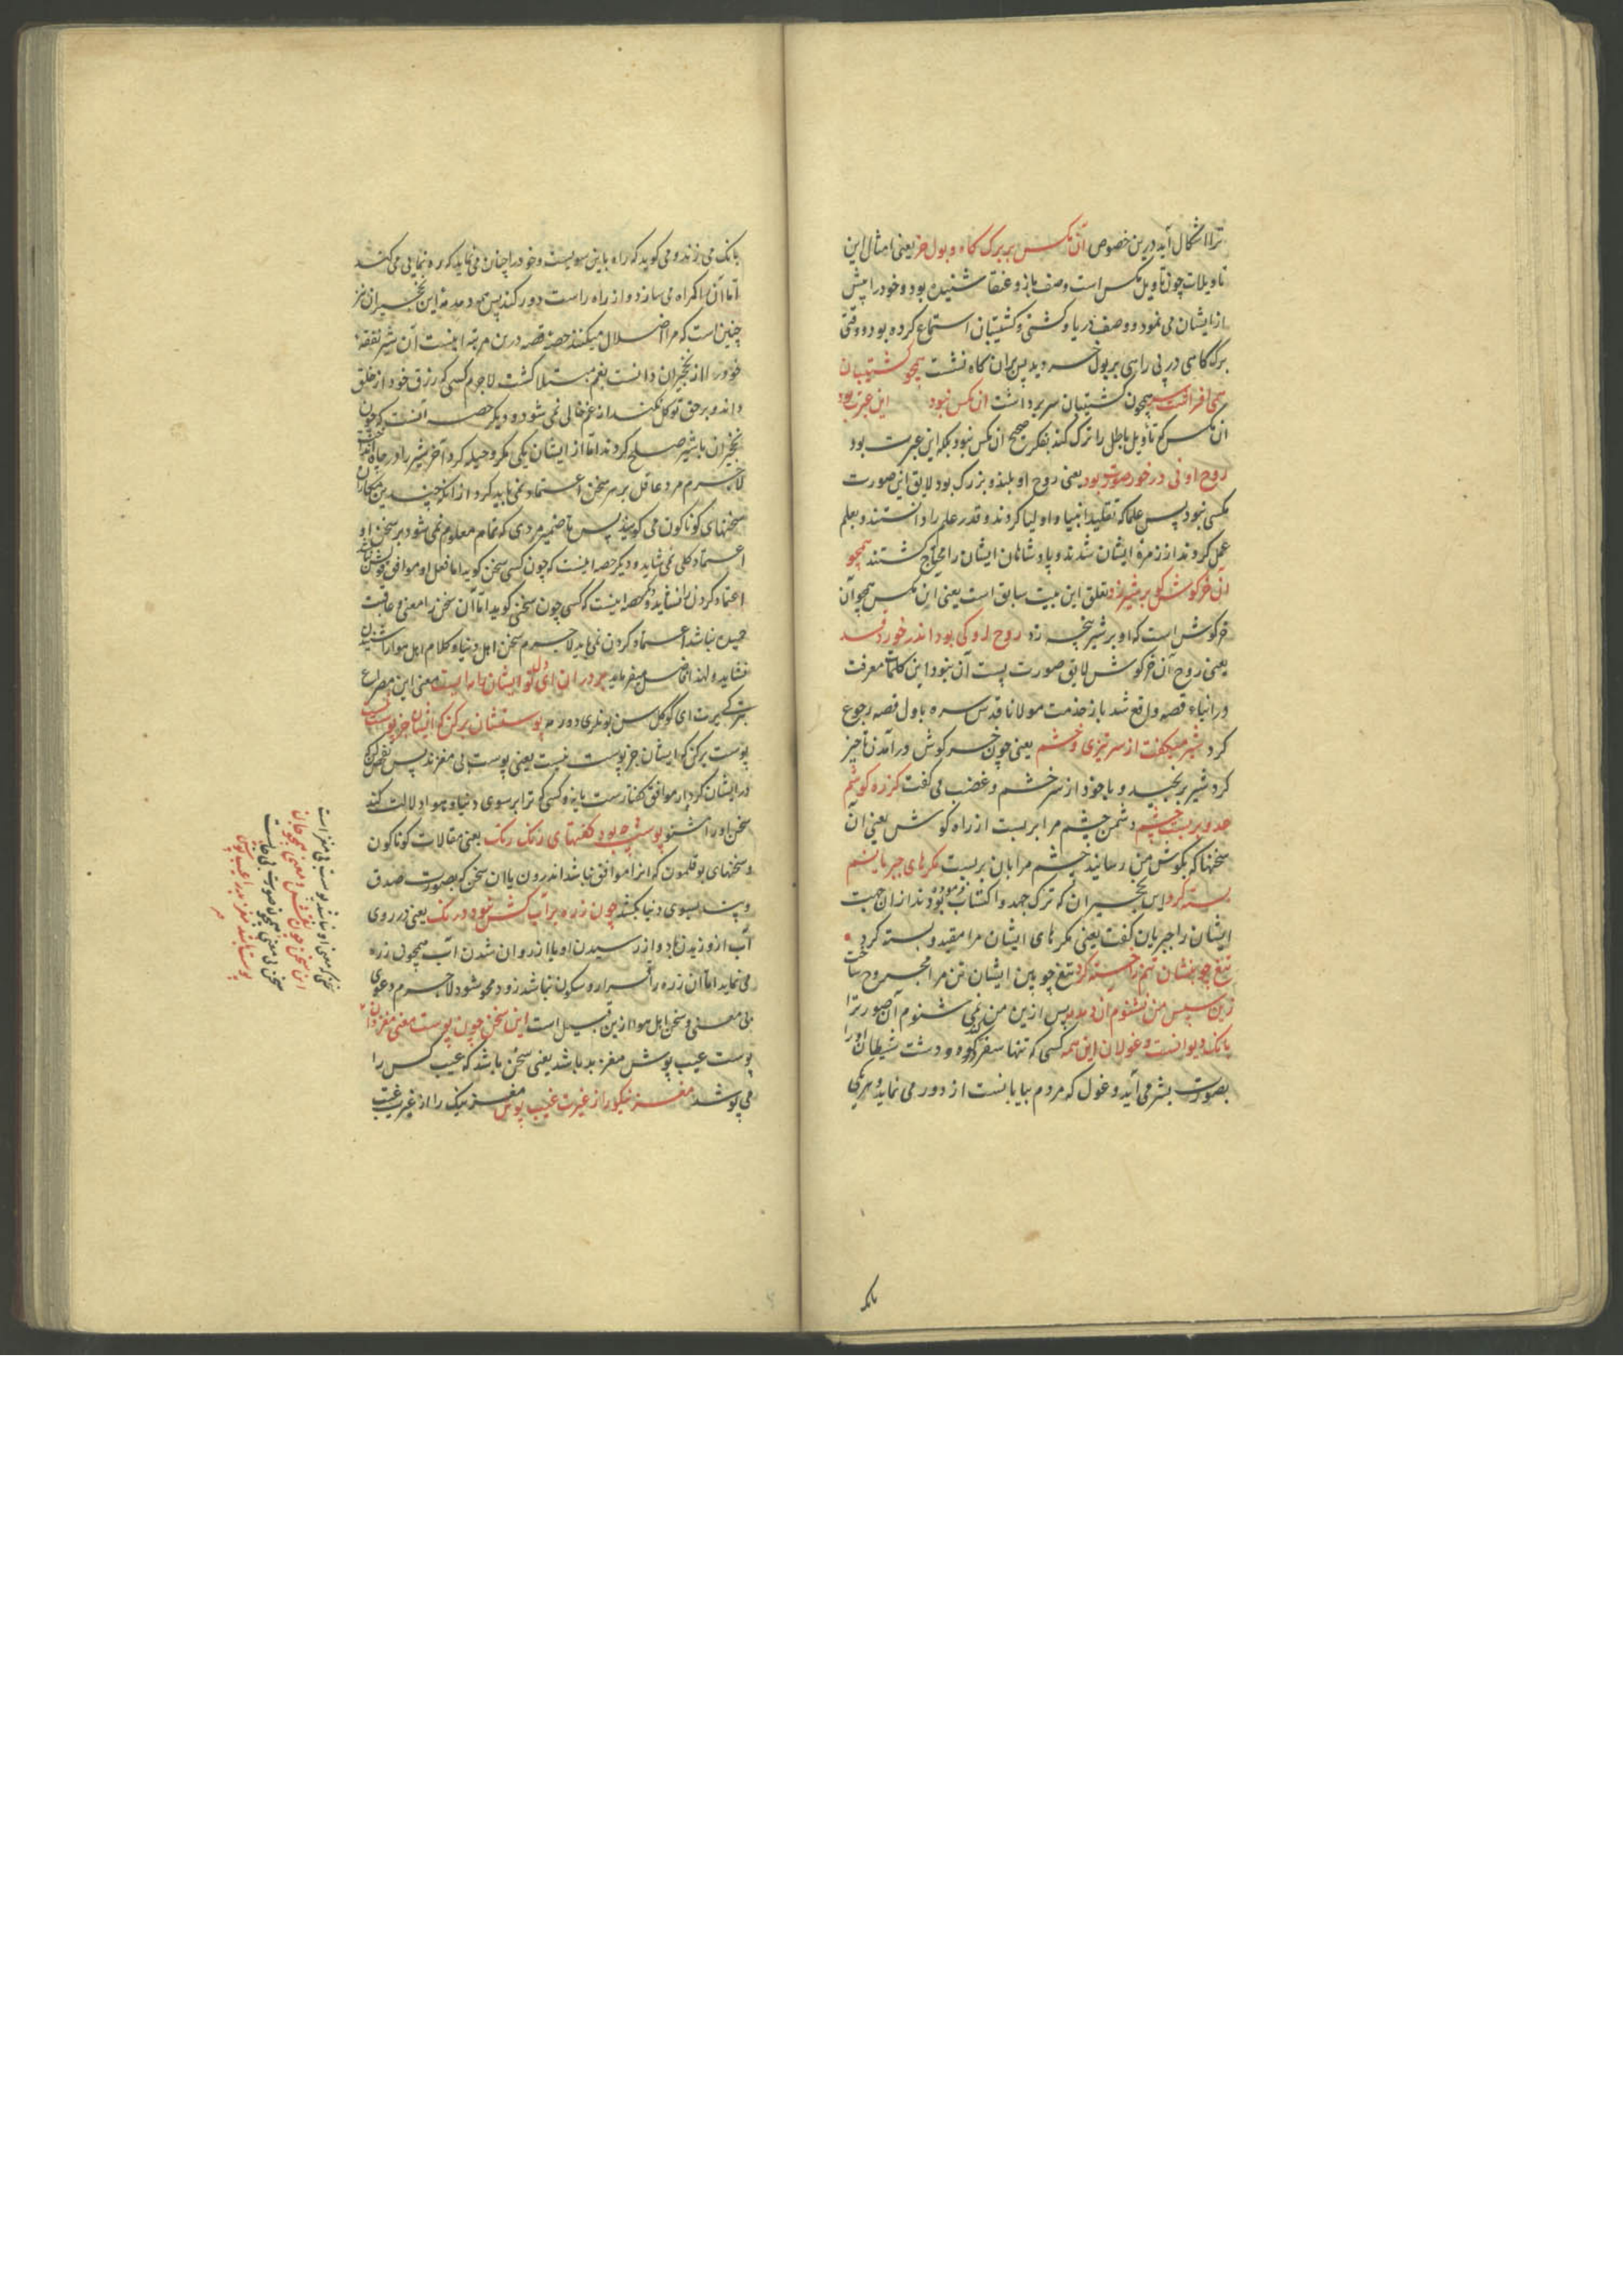 ترا اشکال آید درین خصوص آن مکس بر برک کاه و بول خر یعنی امثال این
تاویلات چون تاویل مکس است وصف باز و عنقا شنیده بود و خود را پیش
از ایشان می نمود و وصف دریا و کشتی و کشتیبان استماع کرده بود و وقتی
برک کاهی در پی راهی بر بول خر دید پس بران کاه نشست همچو کشتیبان
همی افراشت سر همچون کشتیبان سر برداشت ان مکس نبود این عبرت بود
آن مکس کر تأویل باطل را ترک کند بفکرت صحیح آن مکس نبود بلکه این عبرت بود
روح او نی در خور صورت بود یعنی روح او بلند و بزرک بود لایق این صورت
مکسی نبود پس علما که تقلید انبیا و اولیا کردند و قدر علم را دانستند و بعلم
عمل کردند از زمرۀ ایشان شدند و پادشاهان ایشان را محتاج کشتند همچو
آن خرکوش کو بر شیر زد تعلق این بیت سابق است یعنی این مکس همچو آن
خرکوش است که او بر شیر پنجه زد روح او کی بود اندر خورد قد
یعنی روح آن خرکوش لایق صورت پست آن نبود این کلمات معرفت
در اثناء قصه واقع شد باز حذمت مولانا قدس سره باول قصه رجوع
کرد شیر میکفت از سر تیزی و خشم یعنی چون خرکوش در آمدن تاخیر
کرد شیر برنجید و با خود از سر خشم و غضب می کفت کز ره کوشم
عدو بر بست چشم دشمن چشم مرا بر بست از راه کوش یعنی آن
سخنها که بکوش من رسانید چشم مرا بان بر بست مکرهای جبریانم
بسته کرد این نخجیران که ترک جهد و اکتساب فرموده بودند ازان جهت
ایشان را جبریان کفت یعنی مکرهای ایشان مرا مقید و بسته کرد
تیغ چوبینشان تنم را خسته کرد تیغ چوبین ایشان تن مرا مجروح ساخت
زین سپس من نشنوم آن دمدمه پس ازین من نمی شنوم آن صور ترا
بانک دیوانست و غولان این همه کسی که تنها سفر کند در کوه و دشت شیطان او را
بصورت بشر می آید و غول که مردم بیابانست از دور می نماید و هر یکی
بانک
بانک می زند و می کوید که راه باین سویست و خود را چنان می نماید که ره نمایی می کند
اما آن را کمراه می سازد و از راه راست دور کند پس دمدمۀ این نخجیران نیز
چنین است که مرا اضلال میکنند حصۀ قصه درین مرتبه اینست آن شیر نفقۀ
خود را از نخجیران دانست بغم مبتلا کشت لاجرم کسی که رزق خود از خلق
داند و بر حق توکل نکند از غم خالی نمی شود و دیکر حصه آنست که چون
نخجیران با شیر صلح کردند اما از ایشان یکی مکر و حیله کرد آخر شیر را در چاه انداخت
لاجرم مرد عاقل بر هر سخن اعتماد نمی باید کرد از آنکه چندین مکاران
سخنهای کوناکون می کویند پس تا ضمیر مردی که تمام معلوم نمی شود بر سخن او
اعتماد کلی نمی شاید و دیکر حصه اینست که چون کسی سخن کوید اما فعل او موافق قولش نباشد
اعتماد کردن را نشاید و حصه اینست که کسی چون سخنی کوید اما آن سخن را معنی و عاقبت
حمیده نباشد اعتماد کردن نمی باید لاجرم سخن اهل دنیا و کلام اهل هوا را شنیدن
نشاید و لهذا میفرماید بر دران ای دل تو ایشان را مایست معنی این مصراع
پوستشان برکن که ایشان جز پوست نیست
پوست برکن که ایشان جز پوست نیست یعنی پوست بی مغزند پس تفحص کن
در ایشان کردار موافق کفتارست یا نه و کسی که ترا بر سوی دنیا و هوا دلالت کند
سخن او را مشنو پوست چه بود کفتهای رنک رنک یعنی مقالات کوناکون
و سخنهای بوقلمون که انرا موافق نباشد اندرون یا ان سخن که بصورت صدق
و پند بسوی دنیا بکشد چون زره بر آب کش نبود درنک یعنی در روی
آب از وزیدن باد و از رسیدن او یا از روان شدن آب همچون زره
می نماید اما آن زره را قرار و سکون نباشد زود محو شود لاجرم دعوی
بی معنی و سخن اهل هوا ازین قبیل است این سخن چون پوست معنی مغز دان
پوست عیب پوش مغز بد باشد یعنی سخن باشد که عیب کس را
می پوشد مغز نیکو را ز غیرت غیب پوش مغز نیک را از غیرت غیب
سخن که معنی او نباشد پوست بی مغز است
این سخن چون نقش و معنی همچو جان
سخن بی معنی همچون صورت بی جانست
پوست باشد مغز بد را عیب پوش